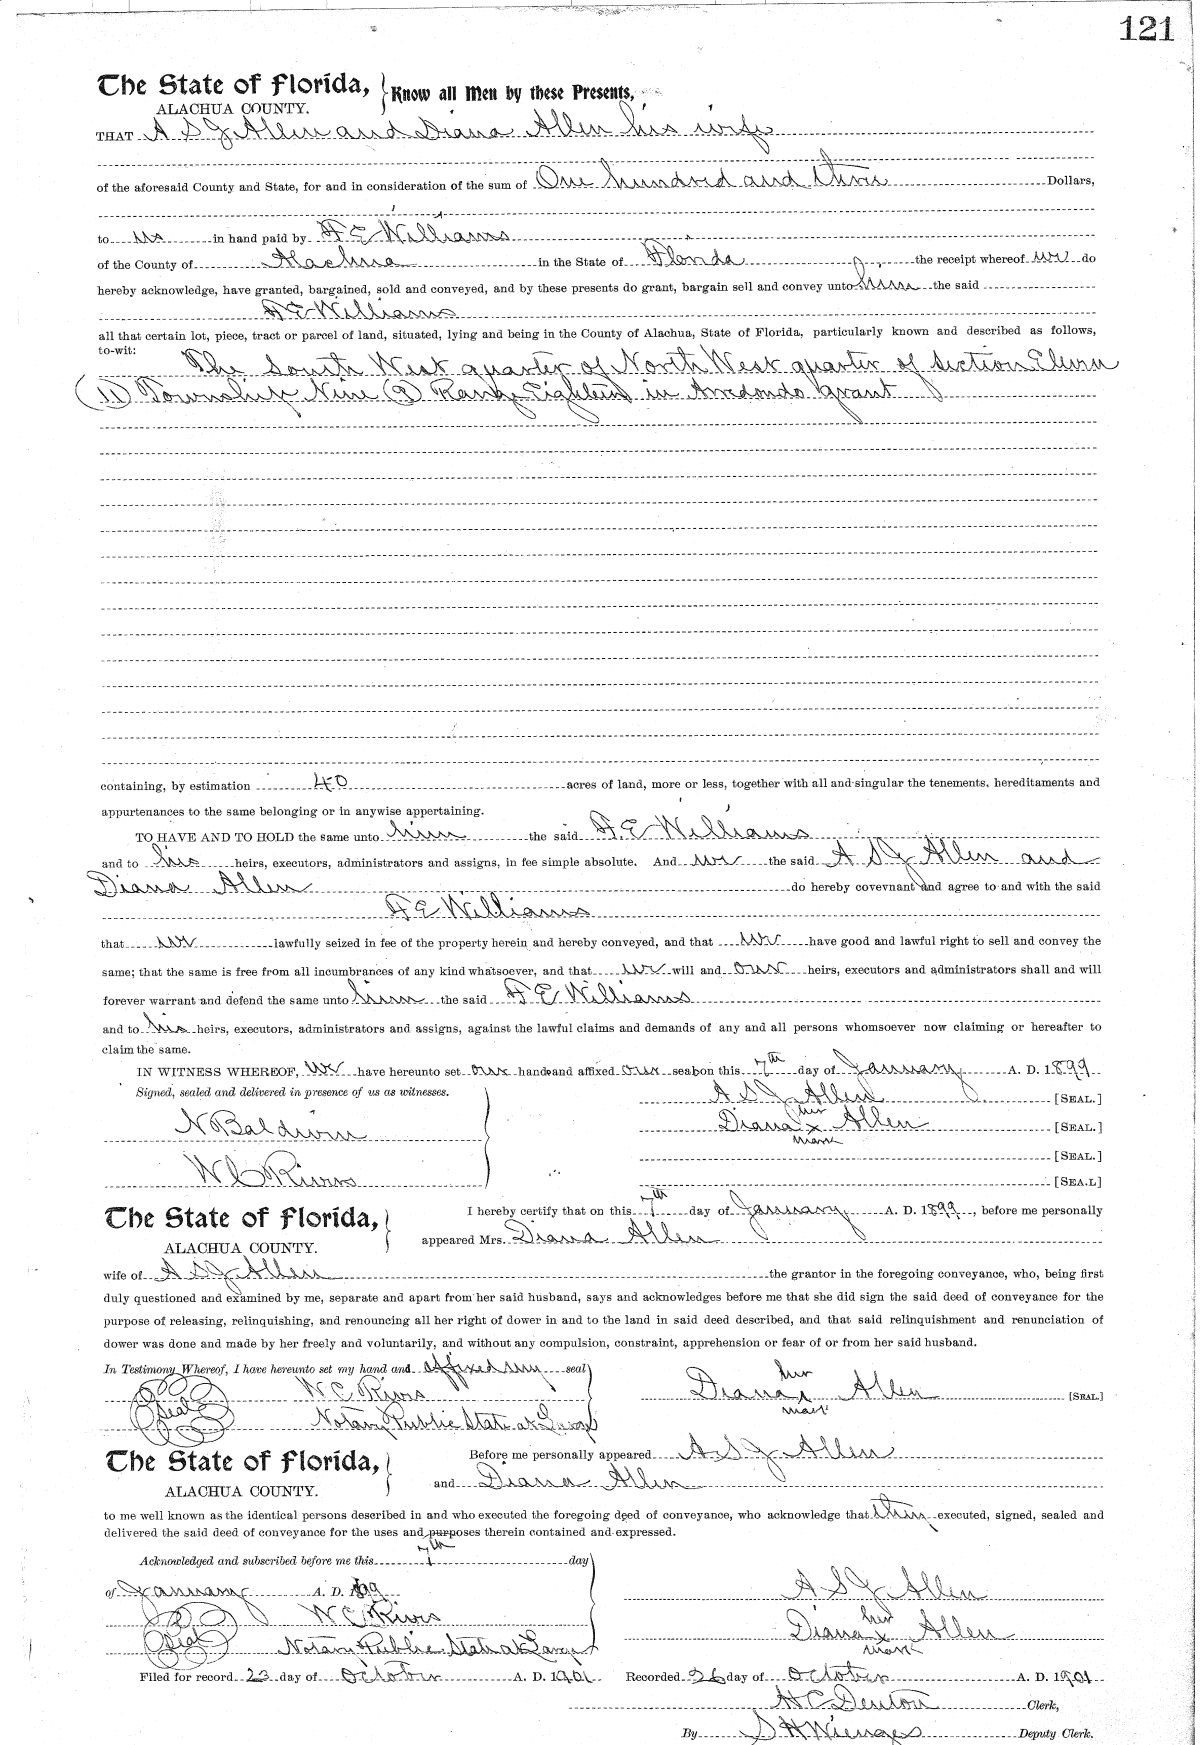 121
The State of Florida, } Know all Men by these Presents,
ALACHUA COUNTY.
THAT A S J Allen and Diana Allen his wife
of the aforesaid County and State, for and in consideration of the sum of One hundred and three Dollars,
to us in hand paid by F E Williams
of the County of Alachua in the State of Florida the receipt whereof we do
hereby acknowledge, have granted, bargained, sold and conveyed, and by these presents do grant, bargain sell and convey unto him the said
F E Williams
all that certain lot, piece, tract or parcel of land, situated, lying and being in the County of Alachua, State of Florida, particularly known and described as follows,
to-wit: The South West quarter of North West quarter of Section Eleven
(11) Township Nine (9) Range Eighteen in Arredondo grant
containing, by estimation 40 acres of land, more or less, together with all and singular the tenements, hereditaments and
appurtenances to the same belonging or in anywise appertaining.
TO HAVE AND TO HOLD the same unto him the said F E Williams
and to his heirs, executors, administrators and assigns, in fee simple absolute. And we the said A S J Allen and
Diana Allen do hereby covevnant and agree to and with the said
F E Williams
that we lawfully seized in fee of the property herein and hereby conveyed, and that we have good and lawful right to sell and convey the
same; that the same is free from all incumbrances of any kind whatsoever, and that we will and our heirs, executors and administrators shall and will
forever warrant and defend the same unto him the said F E Williams
and to his heirs, executors, administrators and assigns, against the lawful claims and demands of any and all persons whomsoever now claiming or hereafter to
claim the same.
IN WITNESS WHEREOF, we have hereunto set our hands and affixed our seals on this 7th day of January A. D. 1899
Signed, sealed and delivered in presence of us as witnesses.
A S J Allen [SEAL.]
her
N Baldwin Diana x Allen [SEAL.]
mark
[SEAL.]
W C Rivers [SEA.L]
The State of Florida, } I hereby certify that on this 7th day of January A. D. 1899, before me personally
ALACHUA COUNTY. appeared Mrs. Diana Allen
wife of A S J Allen the grantor in the foregoing conveyance, who, being first
duly questioned and examined by me, separate and apart from her said husband, says and acknowledges before me that she did sign the said deed of conveyance for the
purpose of releasing, relinquishing, and renouncing all her right of dower in and to the land in said deed described, and that said relinquishment and renunciation of
dower was done and made by her freely and voluntarily, and without any compulsion, constraint, apprehension or fear of or from her said husband.
In Testimony Whereof, I have hereunto set my hand and affixed my seal
her
Seal W C Rivers Diana x Allen [SEAL.]
mark
Notary Public State at Large
The State of Florida, } Before me personally appeared A S J Allen
ALACHUA COUNTY. and Diana Allen
to me well known as the identical persons described in and who executed the foregoing deed of conveyance, who acknowledge that they executed, signed, sealed and
delivered the said deed of conveyance for the uses and purposes therein contained and expressed.
Acknowledged and subscribed before me this 7th day
of January A. D. 1899 A S J Allen
her
Seal W C Rivers Diana x Allen
mark
Notary Public State at Large
Filed for record 23 day of October A. D. 1901 Recorded 26 day of October A. D. 1901
H C Denton Clerk,
By S H Wienges Deputy Clerk.